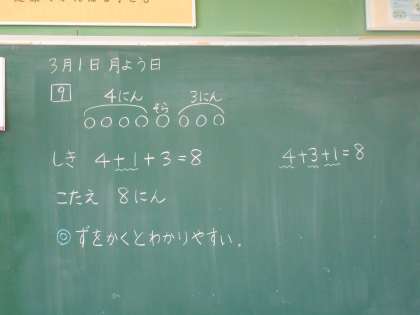 3月1日 月よう日
9
4にん そら 3にん
しき 4+1+3=8 4+3+1=8
こたえ 8にん
◎ずをかくとわかりやすい。